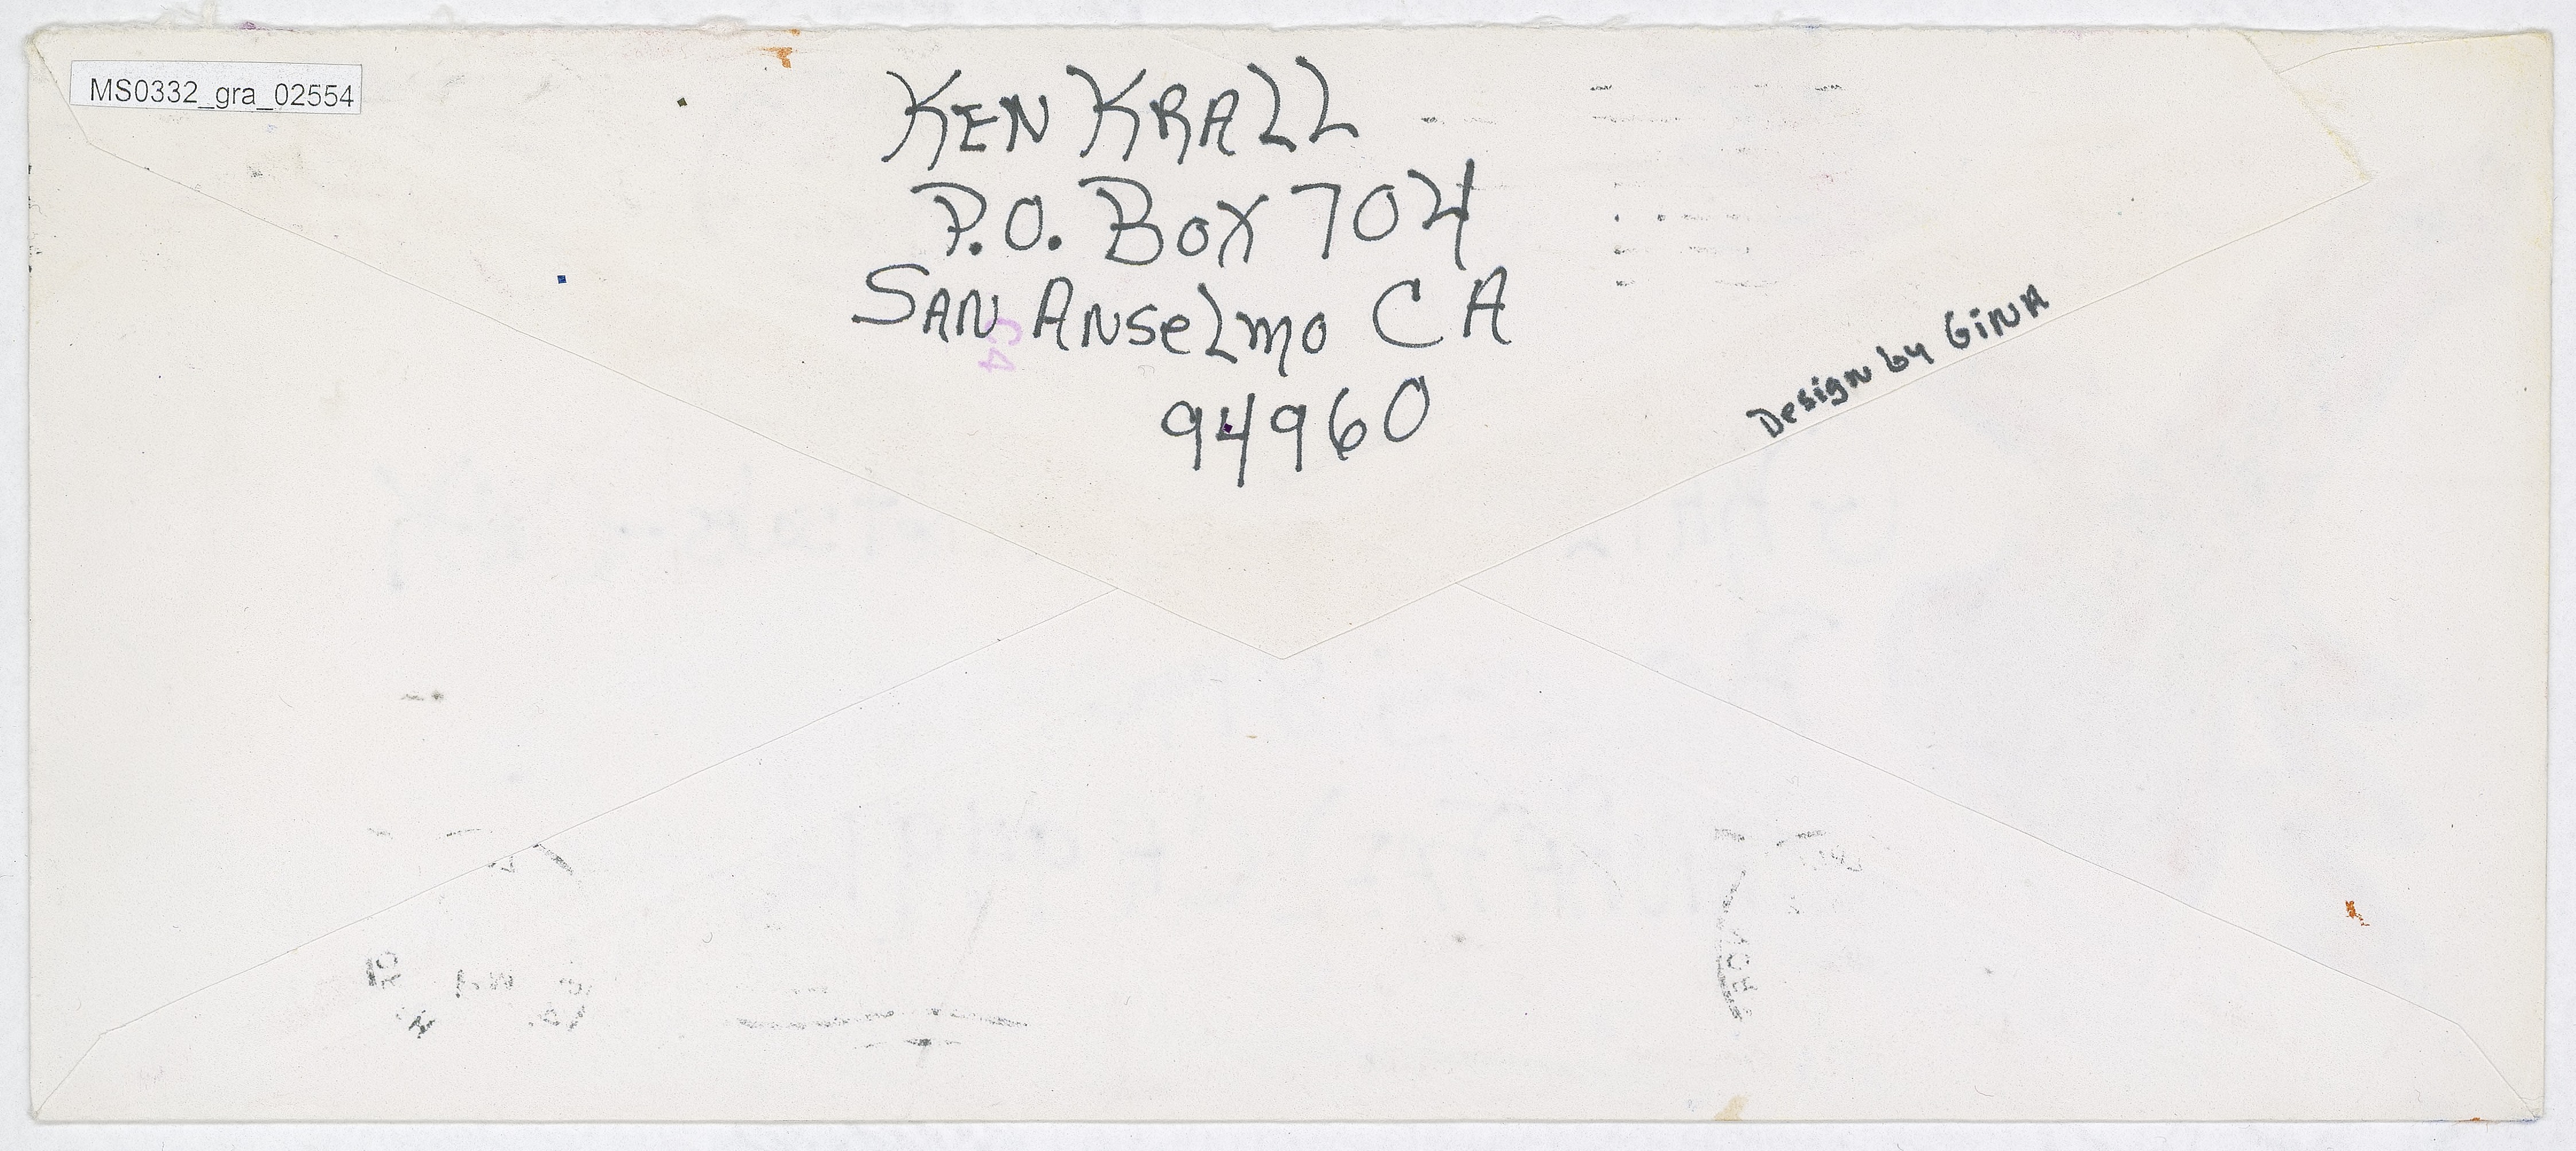 MS0332_gra_02554
KEN KRALL
P.O. BOX 704
SAN ANSeLmo CA
94960
C4
Design by GiNA